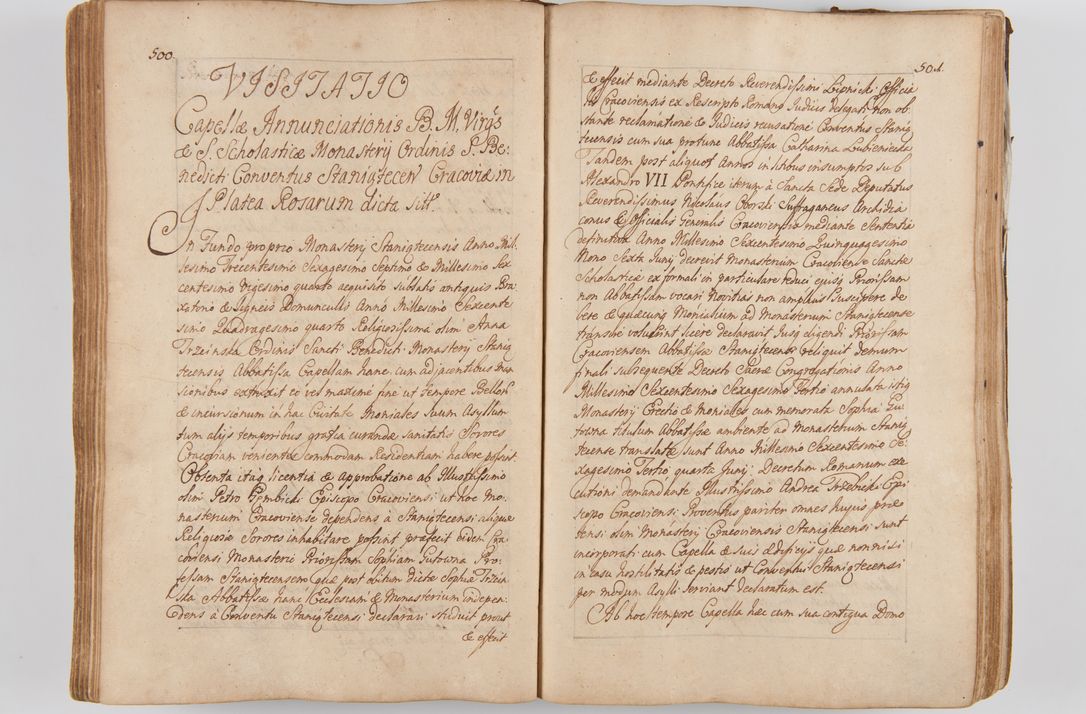 500.
VISITATIO
Capellæ Annunciationis B. M. Virgs
& S. Scholasticæ Monasterij Ordinis S. Be:
nedicti Conventus Staniątecen Cracoviæ in
Platea Rosarum dicta sitæ
In Fundo proprio Monasterij Staniątecensis Anno Mil:
lesimo Trecentesimo Sexagesimo Septimo & Millesimo Sex
centesimo Vigesimo quarto acquisito sublatis antiquis Bra:
xatorio & Ligneis Domunculis Anno Millesimo Sexcente
simo Quadragesimo quarto Religiosissima olim Anna
Trzcinska Ordinis Sancti Benedicti Monasterij Stanią
tecensis Abbatissa Capellam hanc cum adjacentibus Man
sionibus extruxit eo vel maxime fine ut tempore Bellor
& incursionum in hac Civitate Moniales Suum Asyllum
tum alijs temporibus gratia curandæ sanitatis Sorores
Cracoviam venientes Commodam Residentiam habere possent.
Obtenta itaq licentia & approbatione ab Illustrissimo
olim Petro Gembicki Episcopo Cracoviensi ut hoc Mo:
nasterium Cracoviense dependens à Staniątecensi aliquæ
Religiosæ Sorores inhabitare possint præfecit eidem Cra
coviensi Monasterio Priorissam Sophiam Gutowna Pro:
fessam Staniątecensem quæ post obitum dictæ Sophiæ Trzcin
ska Abbatissæ hanc Ecclesiam & Monasterium indepen:
dens à Conventu Staniątecensi declarari studuit prout
& effecit
501.
& effecit mediante Decreto Reverendissimi Lipnicki Officia
lis Cracoviensis ex Rescripto Romano Judicis delegati non ob
stante reclamatione & Judicis recusatione Conventus Stanią
tecensis cum sua protunc Abbatissa Catharina Lubieniecka
Tandem post aliquot Annos in litibus insumptos sub
Alexandro VII Pontifice iterum à Sancta Sede Deputatus
Reverendissimus Nicolaus Oborski Suffraganeus Archidia
conus & Officialis Generalis Cracoviensis mediante Sententia
definitiva Anno Millesimo Sexcentesimo Quinquagesimo
Nono Sexta Junij decrevit Monasterium Cracoviense Sanctæ
Scholasticæ ex formali in particulare reduci ejusq Priorissam
non Abbatissam vocari Novitias non amplius suscipere de
bere & quæcunq Monialium ad Monasterium Staniątecense
transire voluerint licere declaravit Jusq eligendi Priorissam
Cracoviensem Abbatissæ Staniątecensi reliquit demum
finali subsequente Decreto Sacræ Congregationis Anno
Millesimo Sexcentesimo Sexagesimo Tertio annulata istiq
Monasterij Erectio & Moniales cum memorata Sophia Gu
towna titulum Abbatissæ ambiente ad Monasterium Stanią
tecense translatæ sunt Anno Millesimo Sexcentesimo Se:
xagesimo Tertio quarta Junij: Decretum Romanum exe
cutioni demandante Illustrissimo Andrea Trzebicki Epi
scopo Cracoviensi: Proventus pariter omnes hujus præ
tensi olim Monasterij Cracoviensis Staniątecensi sunt
incorporati cum Capella & suis ædificijs quæ non nisi
in casu hostilitatis & pestis ut Conventui Staniątecensi
per modum Asylli serviant declaratum est.
Ab hoc tempore Capella hæc cum sua contigua Domo